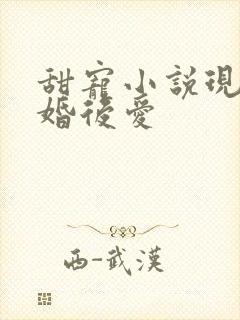 甜寵小說現
婚後愛
西-武漢